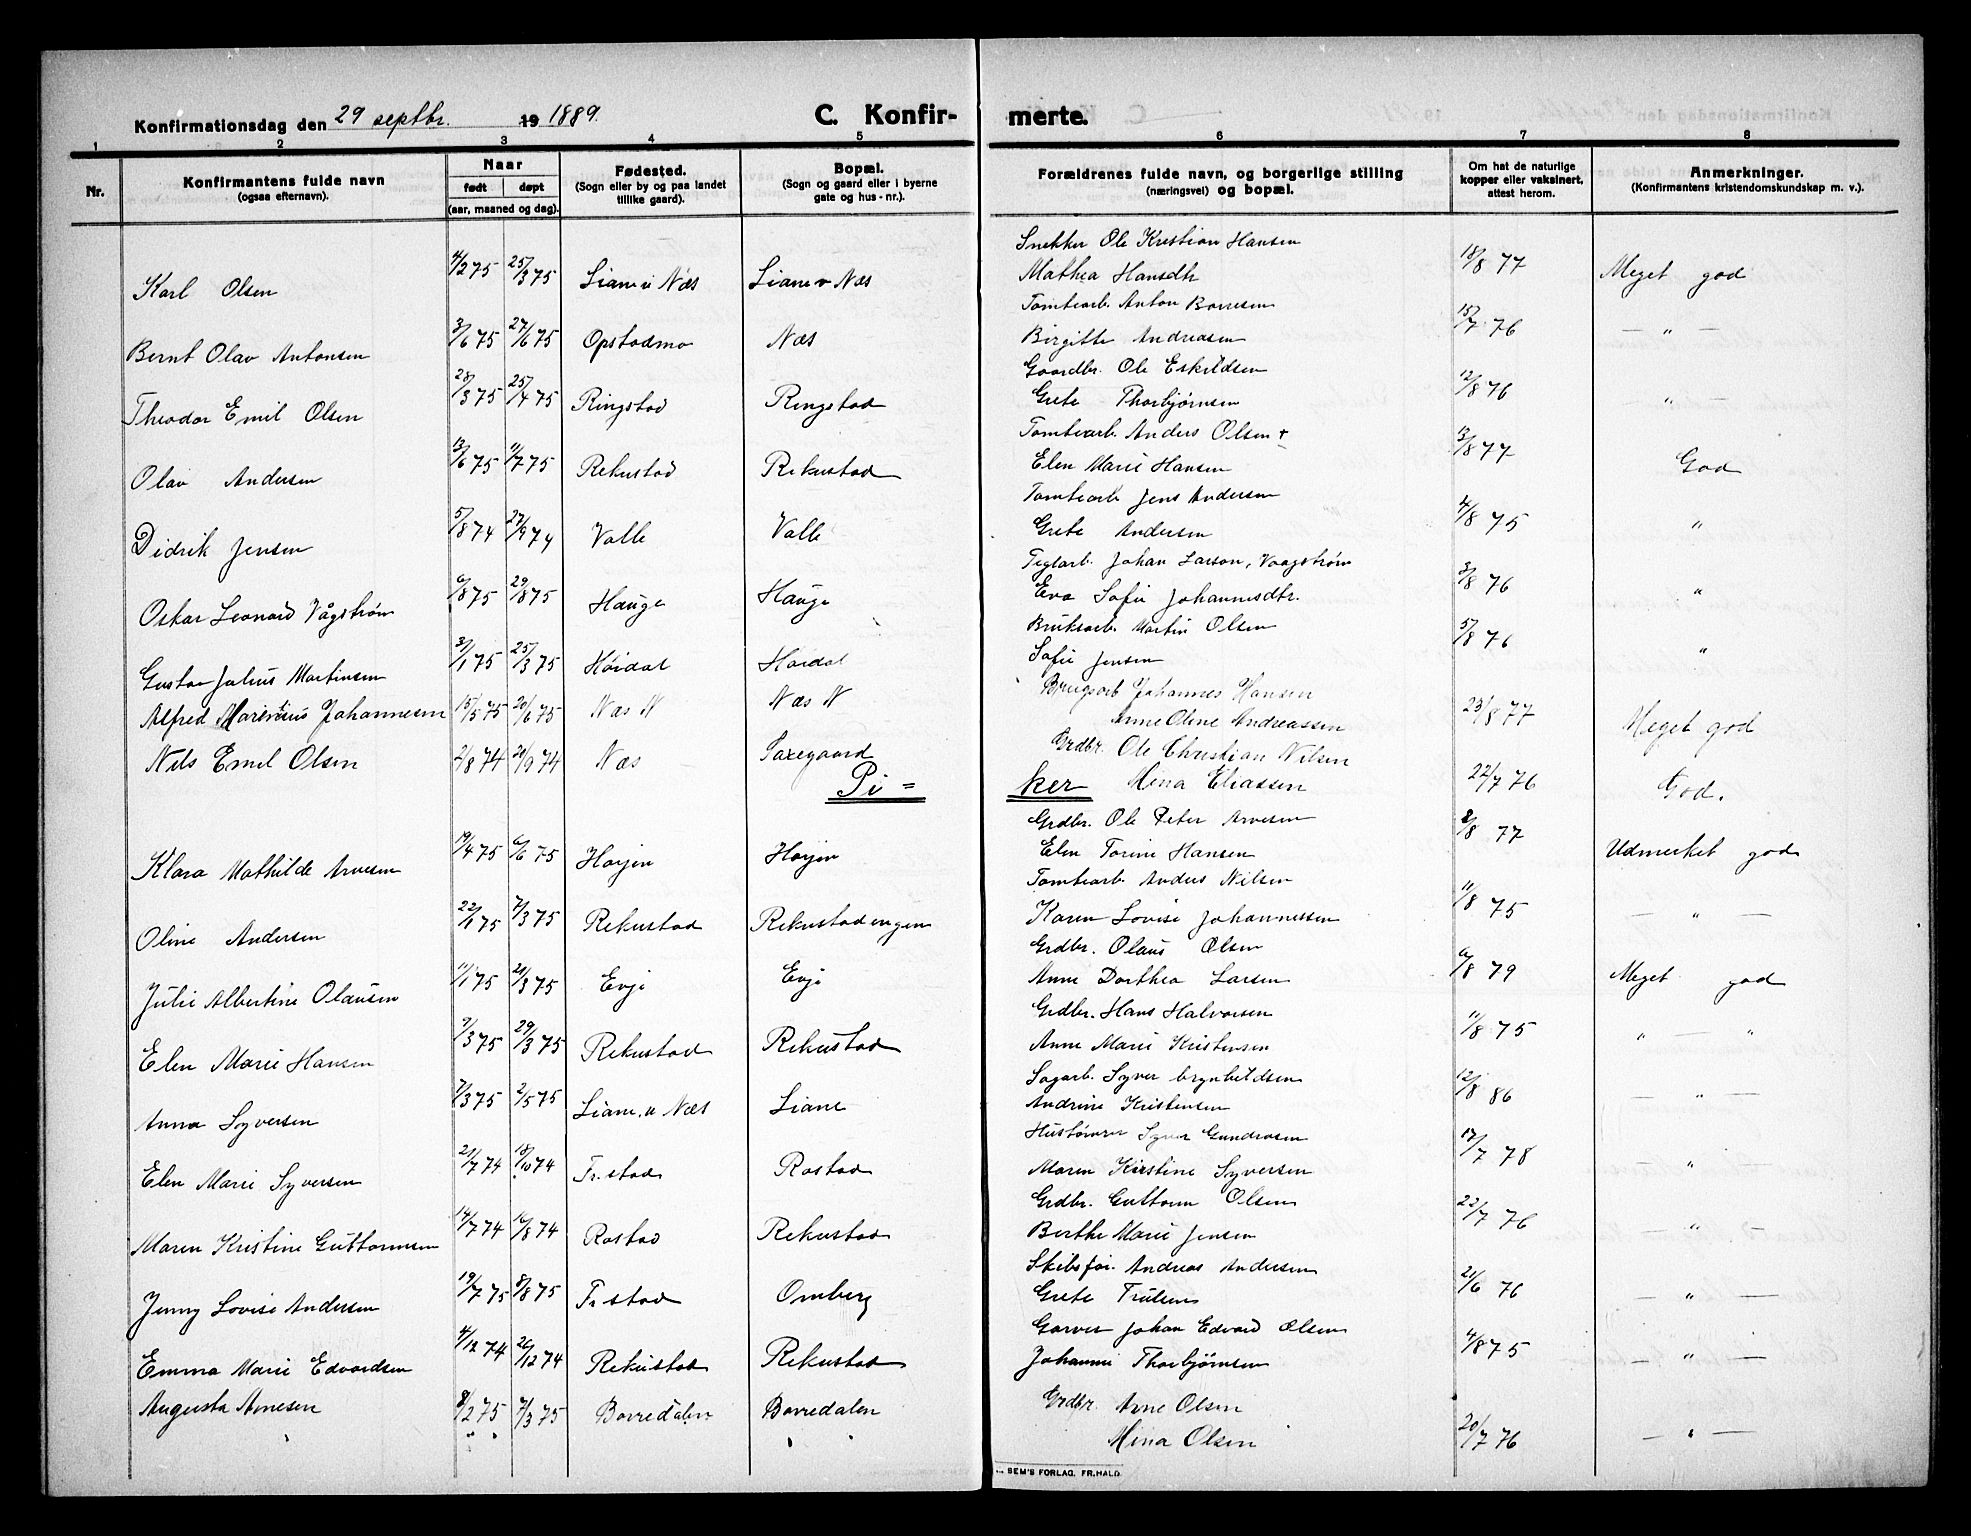 Konfirmationsdag den 29 septbr. 19 1889. C. Konfir- merte.
1 2 3 4 5 6 7 8
Nr. Konfirmantens fulde navn (ogsaa efternavn). Naar født døpt (aar, maaned og dag). Fødested. (Sogn eller by og paa landet tillike gaard). Bopæl. (Sogn og gaard eller i byerne gate og hus-nr.). Forældrenes fulde navn, og borgerlige stilling (næringsvei) og bopæl. Om hat de naturlige kopper eller vaksinert, attest herom. Anmerkninger. (Konfirmantens kristendomskundskap m. v.).
Snekker Ole Kristian Hansen
Karl Olsen 4/2 75 25/3 75 Liane u Næs Liane u Næs Mathea Hansdtr 18/8 77 Meget god
Tomtearb. Anton Borresen
Bernt Olav Antonsen 3/6 75 27/6 75 Opstadmo Næs Birgitte Andreasen 15/7 76 — " —
Gaardbr. Ole Eskildsen
Theodor Emil Olsen 28/3 75 25/4 75 Ringstad Ringstad Grete Thorbjørnsen 12/8 76 " —
Tomtearb. Anders Olsen +
Olav Andersen 13/6 75 11/7 75 Rekustad Rekustad Elen Marie Hansen 3/8 77 God
Tomtearb Jens Andersen
Didrik Jensen 5/8 74 27/9 74 Valle Valle Grete Andersen 4/8 75 "
Teglarb. Johan Larson, Vaagstrøm
Oskar Leonard Vågstrøm 6/8 75 29/8 75 Hauge Hauge Eva Sofie Johannesdtr. 3/8 76 "
Bruksarb. Martin Olsen
Gustav Julius Martinsen 3/1 75 25/3 75 Høidal Høidal Sofie Jensen 5/8 76 "
Brugsarb Johannes Hansen
Alfred Marentius Johannesen 15/5 75 20/6 75 Næs N Næs N Anne Oline Andreassen 23/8 77 Meget god
Grdbr. Ole Christian Nilsen
Nils Emil Olsen 2/8 74 20/9 74 Næs Saxegaard Mina Eliassen 22/7 76 God.
Pi = ker
Grdbr. Ole Peter Arvesen
Klara Mathilde Arvesen 19/4 75 6/6 75 Horjen Horjen Elen Torine Hansen 2/8 77 Udmerket god
Tomtearb. Anders Nilsen
Oline Andersen 22/1 75 7/3 75 Rekustad Rekustadengen Karen Lovise Johannessen 11/8 75 — " —
Grdbr. Olaus Olsen
Julie Albertine Olausen 11/1 75 21/3 75 Evje Evje Anne Dorthea Larsen 6/8 79 Meget god
Grdbr. Hans Halvorsen
Elen Marie Hansen 9/3 75 29/3 75 Rekustad Rekustad Anne Marie Kristensen 11/8 75 " "
Sagarb. Syver Brynhildsen
Anna Syversen 7/3 75 2/5 75 Liane, u Næs Liane Andrine Kristensen 12/8 86 — " —
Syver Gundrosen
Elen Marie Syversen 21/7 74 18/10 74 Fr.stad Rostad Maren Kirstine Syversen 17/7 78 — "
Grdbr. Guttorm Olsen
Maren Kristine Guttormsen 14/7 74 16/8 74 Rostad Rekustad Berthe Marie Jensen 22/7 76 — " —
Skibsfør. Andreas Andersen
Jenny Lovise Andersen 19/7 75 8/8 75 Fr.stad Omberg Grete Trulsen 21/6 76 — " —
Garver Johan Edvard Olsen
Emma Marie Edvardsen 4/12 74 26/12 74 Rekustad Rekustad Johanne Thorbjørnsen 4/8 75 — " —
Augusta Arnesen 8/2 75 7/3 75 Borredalen Borredalen Grdbr. Arne Olsen
Mina Olsen 20/7 76 — " —
SEM'S FORLAG, FR.HALD